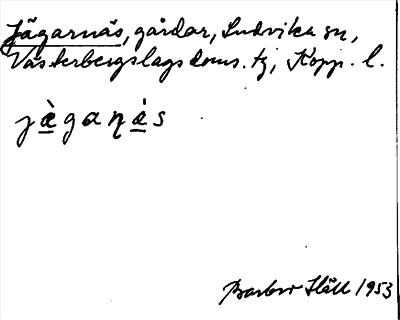 Jägarnäs, gårdar, Ludvika sn,
Västerbergslags doms. tg, Kopp. l.
jä̀gaɳä́s
1953